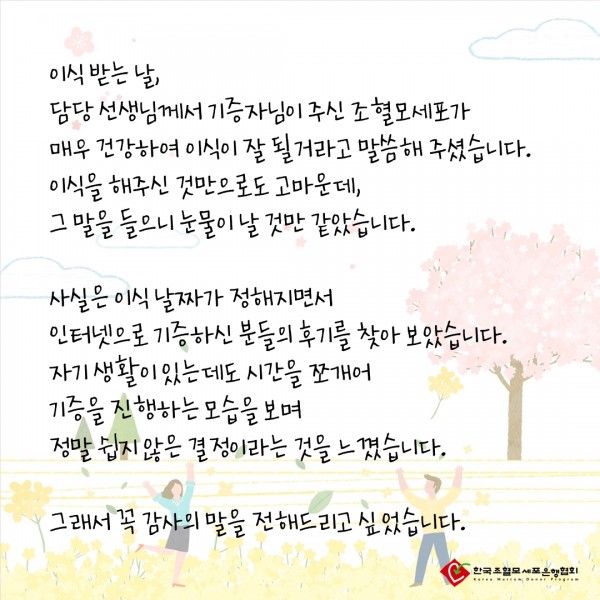 이식 받는 날,
담당 선생님께서 기증자님이 주신 조혈모세포가
매우 건강하여 이식이 잘 될거라고 말씀해 주셨습니다.
이식을 해주신 것만으로도 고마운데,
그 말을 들으니 눈물이 날 것만 같았습니다.
사실은 이식 날짜가 정해지면서
인터넷으로 기증하신 분들의 후기를 찾아 보았습니다.
자기 생활이 있는데도 시간을 쪼개어
기증을 진행하는 모습을 보며
정말 쉽지 않은 결정이라는 것을 느꼈습니다.
그래서 꼭 감사의 말을 전해드리고 싶었습니다.
한국조혈모세포은행협회
Korea Marrow Donor Program